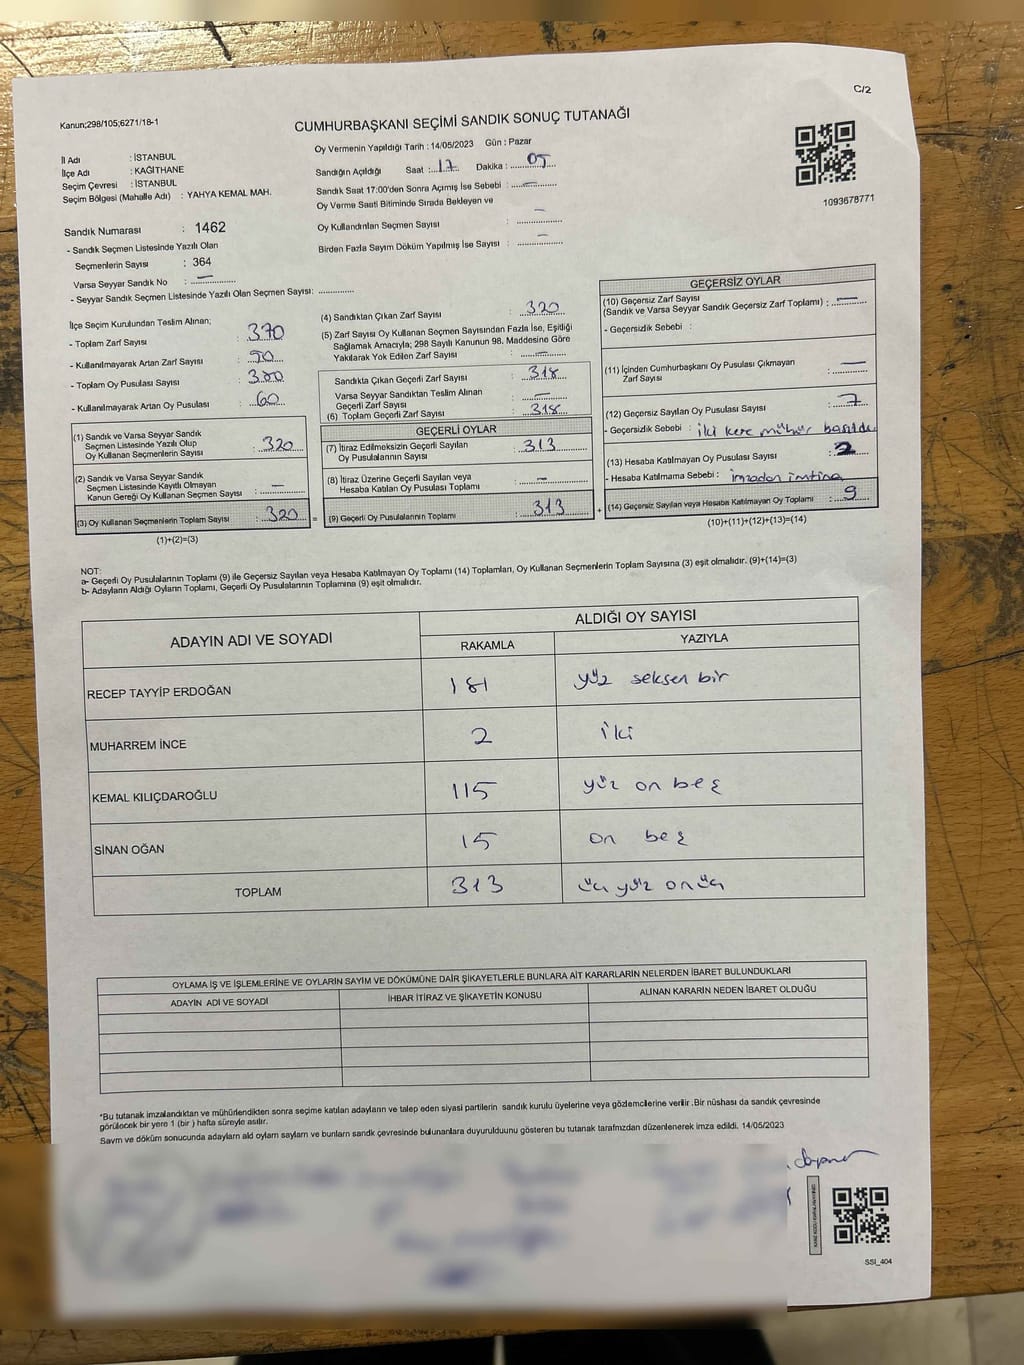 C/2
Kanun;298/105;6271/18-1
CUMHURBAŞKANI SEÇİMİ SANDIK SONUÇ TUTANAĞI
Oy Vermenin Yapıldığı Tarih : 14/05/2023 Gün : Pazar
İl Adı : İSTANBUL
İlçe Adı : KAĞITHANE
Seçim Çevresi : İSTANBUL
Seçim Bölgesi (Mahalle Adı) : YAHYA KEMAL MAH.
Sandığın Açıldığı Saat : 17 Dakika : 05
Sandık Saat 17:00'den Sonra Açımış İse Sebebi : —
Oy Verme Saati Bitiminde Sırada Bekleyen ve
Oy Kullandırılan Seçmen Sayısı : —
Birden Fazla Sayım Döküm Yapılmış İse Sayısı : —
1093678771
Sandık Numarası : 1462
- Sandık Seçmen Listesinde Yazılı Olan
Seçmenlerin Sayısı : 364
Varsa Seyyar Sandık No : —
- Seyyar Sandık Seçmen Listesinde Yazılı Olan Seçmen Sayısı: ..............
İlçe Seçim Kurulundan Teslim Alınan;
- Toplam Zarf Sayısı : 370
- Kullanılmayarak Artan Zarf Sayısı : 50
- Toplam Oy Pusulası Sayısı : 380
- Kullanılmayarak Artan Oy Pusulası : 60
(1) Sandık ve Varsa Seyyar Sandık
Seçmen Listesinde Yazılı Olup
Oy Kullanan Seçmenlerin Sayısı : 320
(2) Sandık ve Varsa Seyyar Sandık
Seçmen Listesinde Kayıtlı Olmayan
Kanun Gereği Oy Kullanan Seçmen Sayısı : —
(3) Oy Kullanan Seçmenlerin Toplam Sayısı : 320 =
(1)+(2)=(3)
(4) Sandıktan Çıkan Zarf Sayısı : 320
(5) Zarf Sayısı Oy Kullanan Seçmen Sayısından Fazla İse, Eşitliği
Sağlamak Amacıyla; 298 Sayılı Kanunun 98. Maddesine Göre
Yakılarak Yok Edilen Zarf Sayısı : —
Sandıkta Çıkan Geçerli Zarf Sayısı : 318
Varsa Seyyar Sandıktan Teslim Alınan
Geçerli Zarf Sayısı : —
(6) Toplam Geçerli Zarf Sayısı : 318
GEÇERLİ OYLAR
(7) İtiraz Edilmeksizin Geçerli Sayılan
Oy Pusulalarının Sayısı : 313
(8) İtiraz Üzerine Geçerli Sayılan veya
Hesaba Katılan Oy Pusulası Toplamı : —
(9) Geçerli Oy Pusulalarının Toplamı : 313 +
GEÇERSİZ OYLAR
(10) Geçersiz Zarf Sayısı
(Sandık ve Varsa Seyyar Sandık Geçersiz Zarf Toplamı) : —
- Geçersizlik Sebebi :
(11) İçinden Cumhurbaşkanı Oy Pusulası Çıkmayan
Zarf Sayısı : —
(12) Geçersiz Sayılan Oy Pusulası Sayısı : 7
- Geçersizlik Sebebi : iki kere mühür basıldı
(13) Hesaba Katılmayan Oy Pusulası Sayısı : 2
- Hesaba Katılmama Sebebi : imzadan imtina
(14) Geçersiz Sayılan veya Hesaba Katılmayan Oy Toplamı : 9
(10)+(11)+(12)+(13)=(14)
NOT:
a- Geçerli Oy Pusulalarının Toplamı (9) ile Geçersiz Sayılan veya Hesaba Katılmayan Oy Toplamı (14) Toplamları, Oy Kullanan Seçmenlerin Toplam Sayısına (3) eşit olmalıdır. (9)+(14)=(3)
b- Adayların Aldığı Oyların Toplamı, Geçerli Oy Pusulalarının Toplamına (9) eşit olmalıdır.
ADAYIN ADI VE SOYADI ALDIĞI OY SAYISI
RAKAMLA YAZIYLA
RECEP TAYYİP ERDOĞAN 181 yüz seksen bir
MUHARREM İNCE 2 iki
KEMAL KILIÇDAROĞLU 115 yüz on beş
SİNAN OĞAN 15 on beş
TOPLAM 313 üç yüz on üç
OYLAMA İŞ VE İŞLEMLERİNE VE OYLARIN SAYIM VE DÖKÜMÜNE DAİR ŞİKAYETLERLE BUNLARA AİT KARARLARIN NELERDEN İBARET BULUNDUKLARI
ADAYIN ADI VE SOYADI İHBAR İTİRAZ VE ŞİKAYETİN KONUSU ALINAN KARARIN NEDEN İBARET OLDUĞU
*Bu tutanak imzalandıktan ve mühürlendikten sonra seçime katılan adayların ve talep eden siyasi partilerin sandık kurulu üyelerine veya gözlemcilerine verilir. Bir nüshası da sandık çevresinde
görülecek bir yere 1 (bir) hafta süreyle asılır.
Sayım ve döküm sonucunda adayların ald oyların sayların ve bunların sandk çevresinde bulunanlara duyurulduunu gösteren bu tutanak tarafmzdan düzenlenerek imza edildi. 14/05/2023
SSI_404